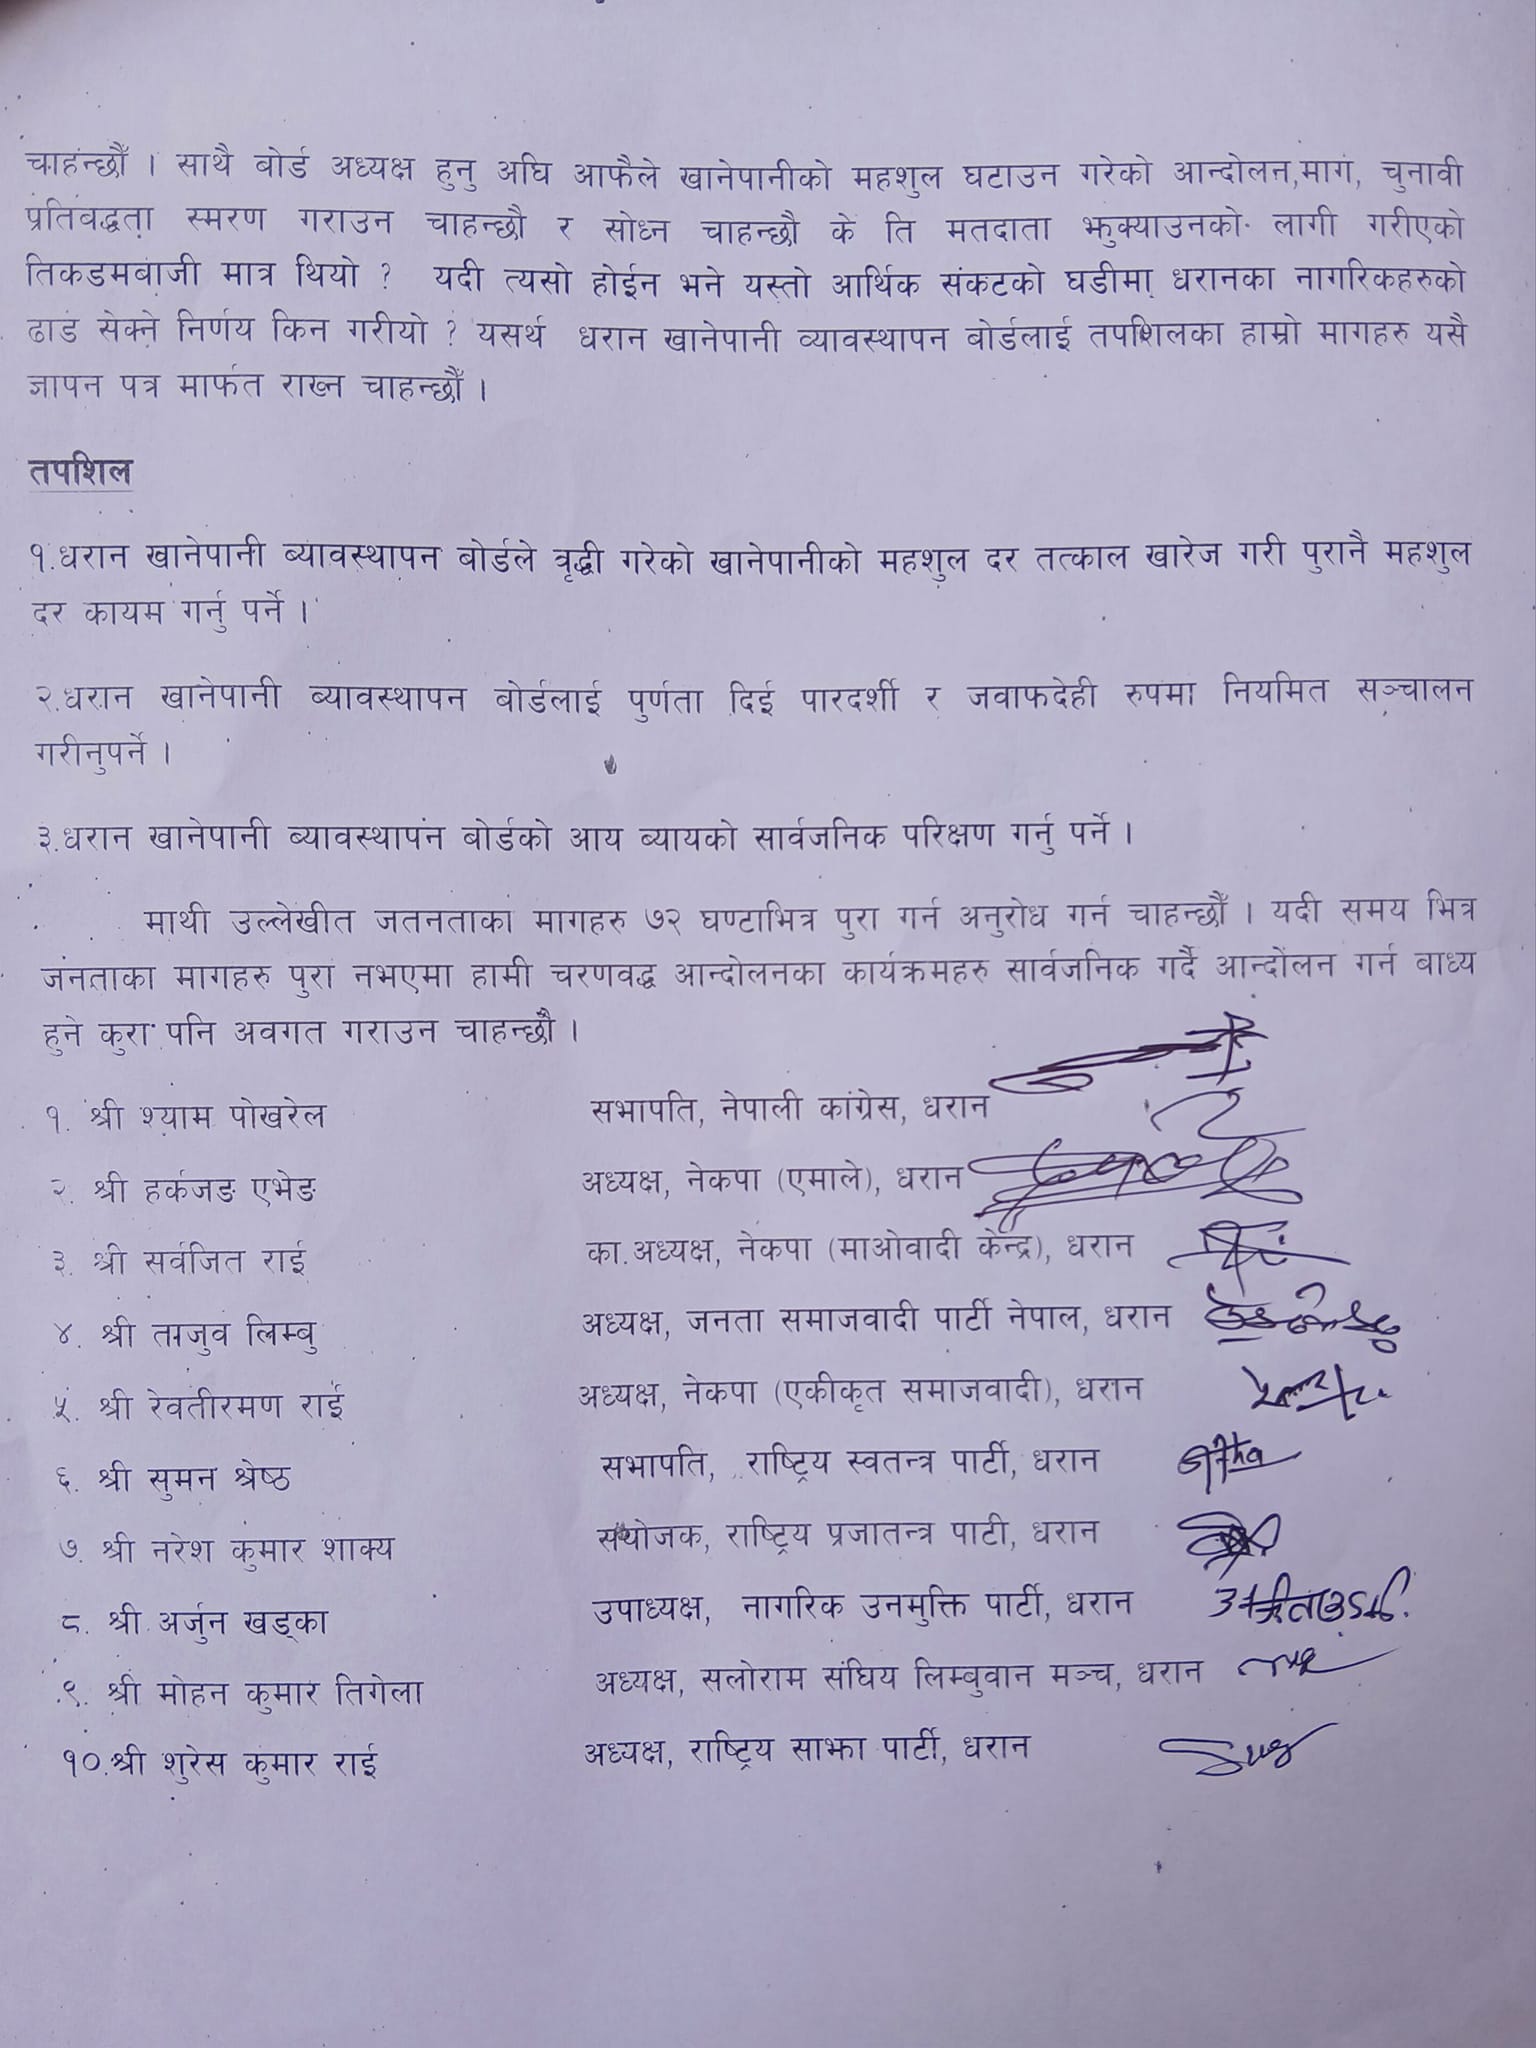 चाहन्छौँ । साथै बोर्ड अध्यक्ष हुनु अघि आफैले खानेपानीको महशुल घटाउन गरेको आन्दोलन,माग, चुनावी
प्रतिवद्धता स्मरण गराउन चाहन्छौ र सोध्न चाहन्छौ के ति मतदाता झुक्याउनको लागी गरीएको
तिकडमवाजी मात्र थियो ? यदी त्यसो होईन भने यस्तो आर्थिक संकटको घडीमा धरानका नागरिकहरुको
ढाड सेक्ने निर्णय किन गरीयो ? यसर्थ धरान खानेपानी व्यावस्थापन बोर्डलाई तपशिलका हाम्रो मागहरु यसै
ज्ञापन पत्र मार्फत राख्न चाहन्छौँ ।
तपशिल
१.धरान खानेपानी ब्यावस्थापन बोर्डले वृद्धी गरेको खानेपानीको महशुल दर तत्काल खारेज गरी पुरानै महशुल
दर कायम गर्नु पर्ने ।
२.धरान खानेपानी ब्यावस्थापन बोर्डलाई पुर्णता दिई पारदर्शी र जवाफदेही रुपमा नियमित सञ्चालन
गरीनुपर्ने ।
३.धरान खानेपानी ब्यावस्थापन बोर्डको आय ब्यायको सार्वजनिक परिक्षण गर्नु पर्ने ।
माथी उल्लेखीत जतनताका मागहरु ७२ घण्टाभित्र पुरा गर्न अनुरोध गर्न चाहन्छौँ । यदी समय भित्र
जनताका मागहरु पुरा नभएमा हामी चरणवद्ध आन्दोलनका कार्यक्रमहरु सार्वजनिक गर्दै आन्दोलन गर्न बाध्य
हुने कुरा पनि अवगत गराउन चाहन्छौ ।
१. श्री श्याम पोखरेल सभापति, नेपाली कांग्रेस, धरान
२. श्री हर्कजङ एभेङ अध्यक्ष, नेकपा (एमाले), धरान
३. श्री सर्वजित राई का.अध्यक्ष, नेकपा (माओवादी केन्द्र), धरान
४. श्री ताजुव लिम्बु अध्यक्ष, जनता समाजवादी पार्टी नेपाल, धरान
५. श्री रेवतीरमण राई अध्यक्ष, नेकपा (एकीकृत समाजवादी), धरान
६. श्री सुमन श्रेष्ठ सभापति, राष्ट्रिय स्वतन्त्र पार्टी, धरान
७. श्री नरेश कुमार शाक्य संयोजक, राष्ट्रिय प्रजातन्त्र पाटी, धरान
८. श्री अर्जुन खड्का उपाध्यक्ष, नागरिक उनमुक्ति पार्टी, धरान
९. श्री मोहन कुमार तिगेला अध्यक्ष, सलोराम संघिय लिम्बुवान मञ्च, धरान
१०.श्री शुरेस कुमार राई अध्यक्ष, राष्ट्रिय साझा पार्टी, धरान